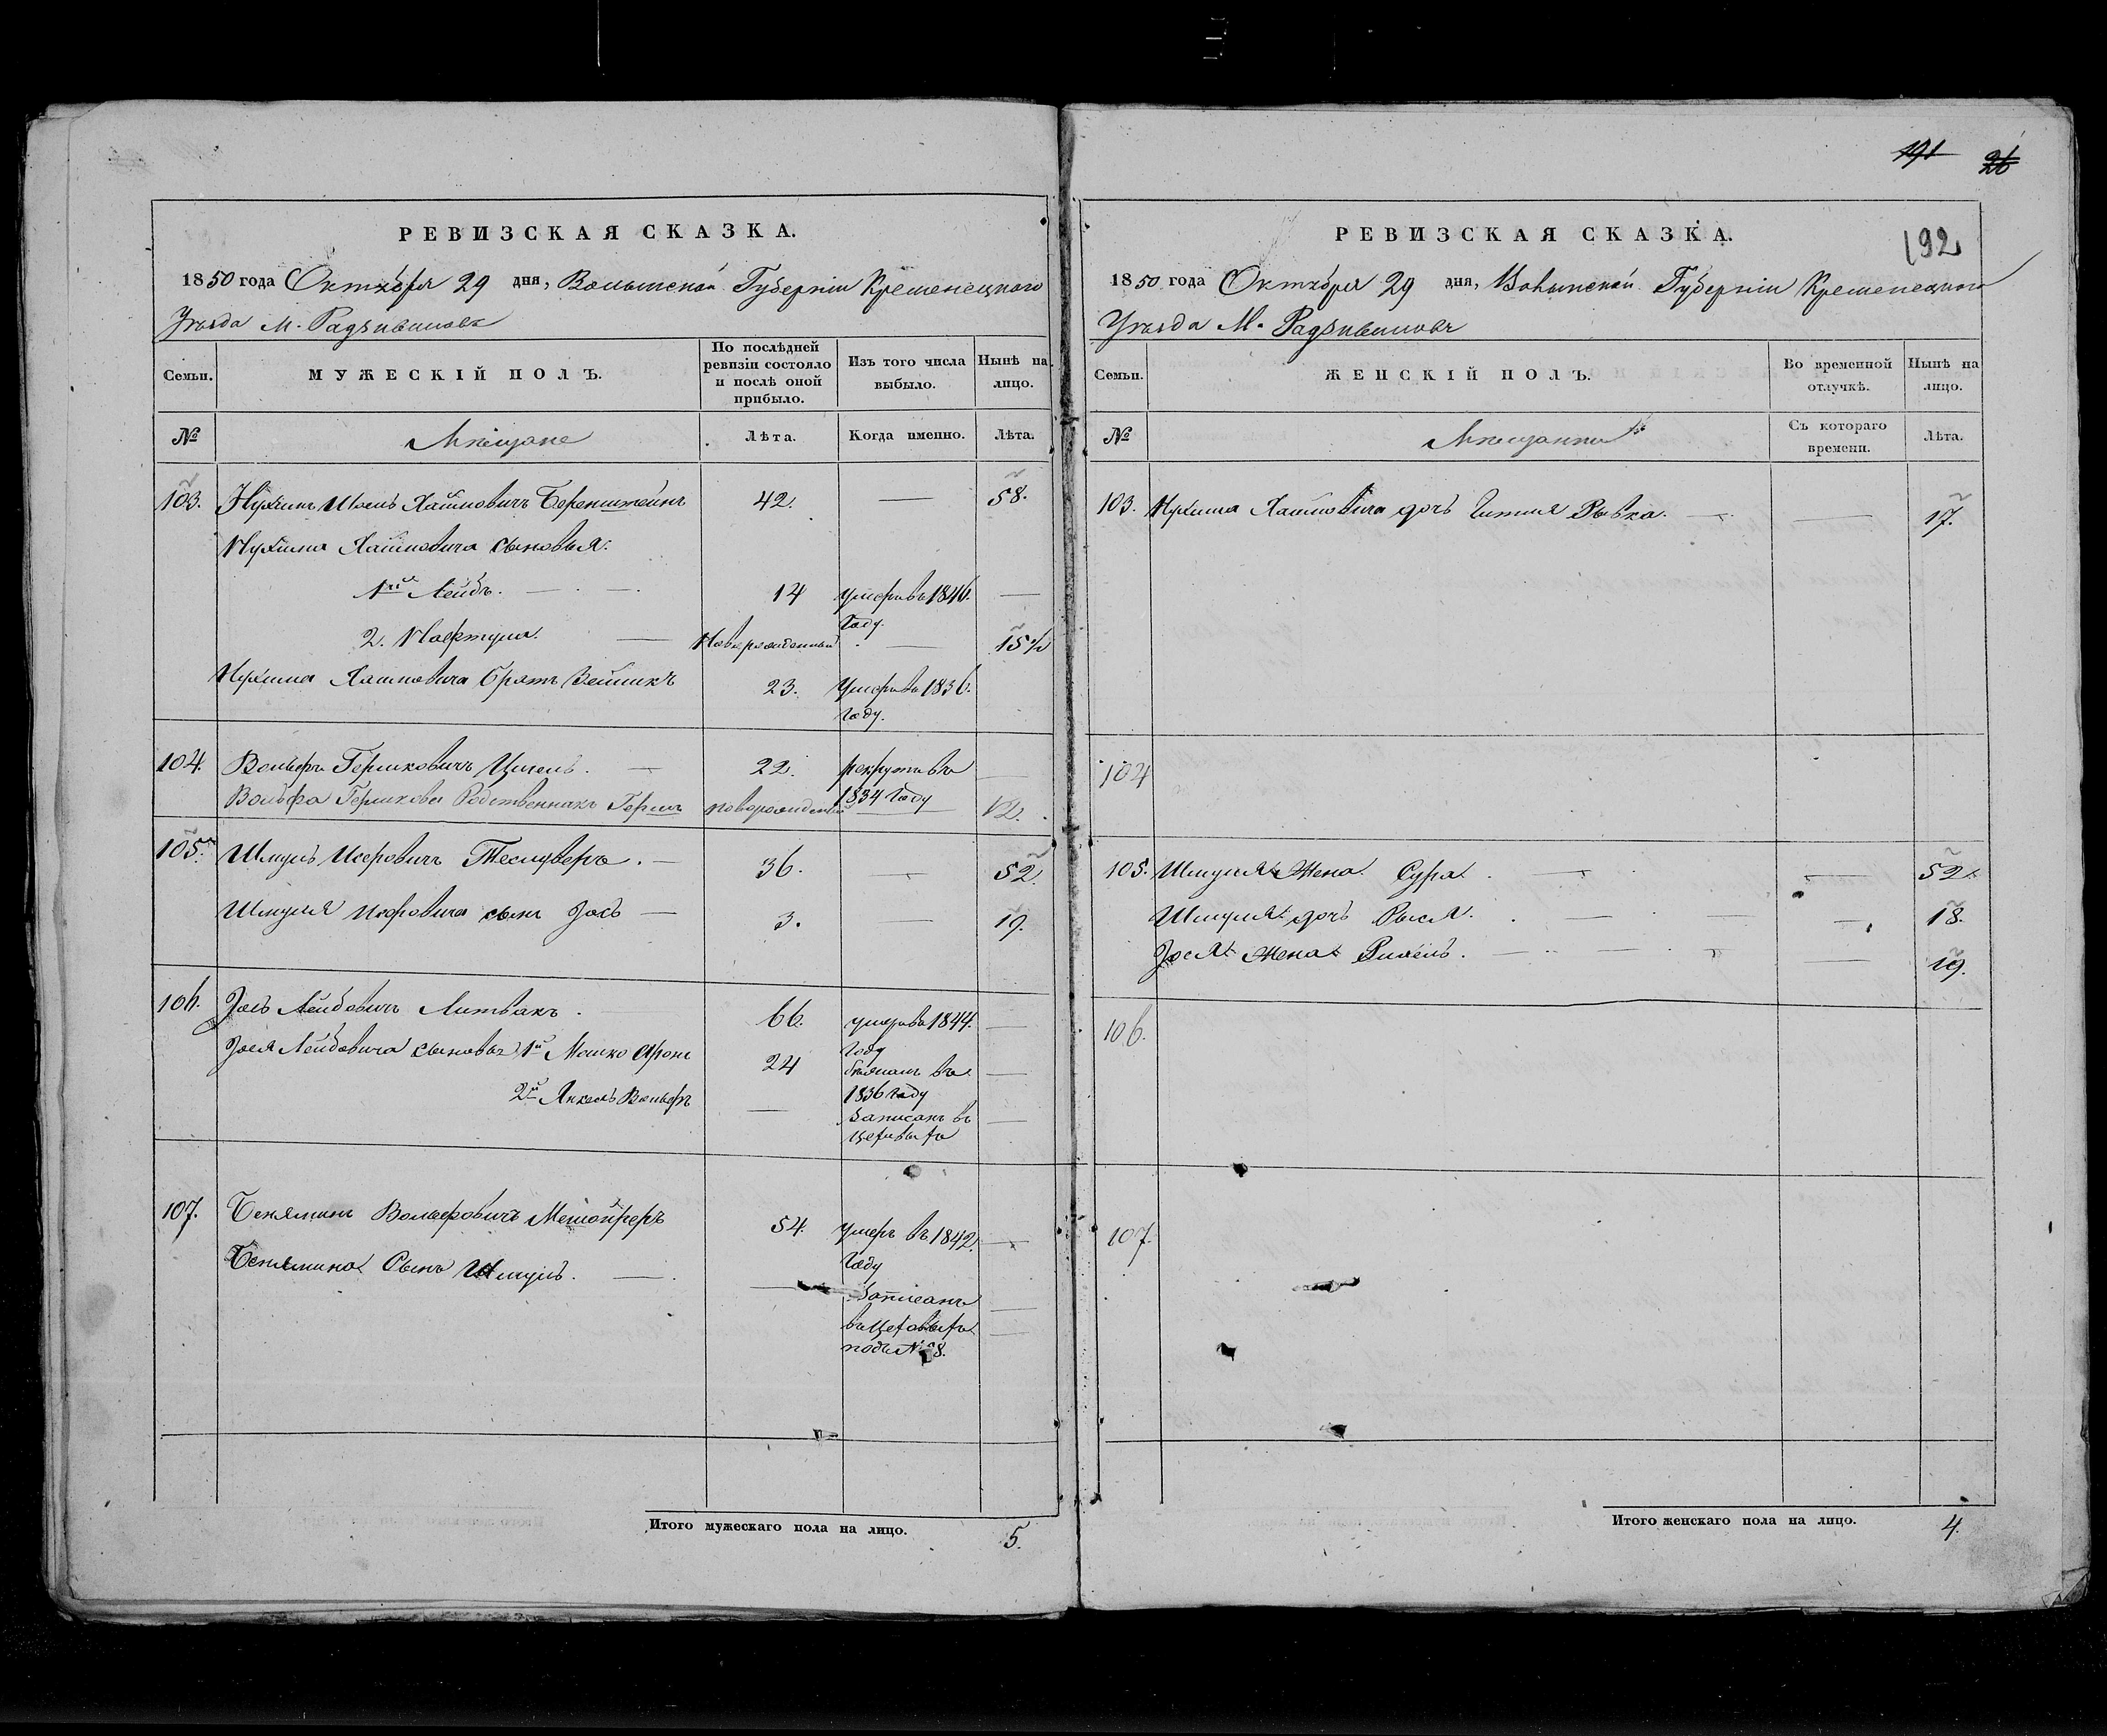 191 26
РЕВИЗСКАЯ СКАЗКА.
1850 года Октября 29 дня, Волынской Губерніи Кременецкого
Уѣзда М. Радзивиловѣ
Семьи. МУЖЕСКІЙ ПОЛЪ. По послѣдней ревизіи состояло и послѣ оной прибыло. Изъ того числа выбыло. Нынѣ на лицо.
№ Мѣщане Лѣта. Когда именно. Лѣта.
103. Нухимъ Шоель Хаймовичъ Беренштейнъ 42. — 58.
Нухима Хаймовича сыновья:
1й Лейбъ. — 14 умеръ въ 1846. Году. —
2. Нафтула. — Новорожденный — 15 ½
Нухима Хаимовича братъ Зейликъ 23. Умеръ въ 1836. Году.
104. Вольфъ Гершковичъ Цигель. — 22. рекрутъ въ 1834 Году —
Вольфа Гершкова Родственникъ Гершъ новорожденный — 12.
105. Шмуль Иосровичъ — 36. — 52.
Шмуля сынъ Іосъ — 3. — 19.
106. Іось Лейбовичъ Литвакъ. 66. умеръ въ 1844. Году —
Іося Лейбовича сыновья 1й Мошко Аронъ 24 въ 1836 Году —
2й Янкель Вольфъ — Записанъ въ —
107. Бенямин Вольфовичъ 54. Умеръ въ 1842. Году —
Бенямина Сынъ Шмуль. — — Записанъ —
подъ № 8. —
Итого мужескаго пола на лицо. 5.
РЕВИЗСКАЯ СКАЗКА. 192
1850 года Октября 29 дня, Волынской Губерніи Кременецкого
Уѣзда М. Радзивиловѣ
Семьи. ЖЕНСКІЙ ПОЛЪ. Во временной отлучкѣ. Нынѣ на лицо.
№ Мѣщанки Съ котораго времени. Лѣта.
103. Нухима Хаймовича дочь Гитля Рывка. — — 17.
104
105. Шмуля Жена Сура. — — 52.
Шмуля дочь Рыся. — — 18.
Іося Жена Рихель. — — 19.
106.
107.
Итого женскаго пола на лицо. 4.